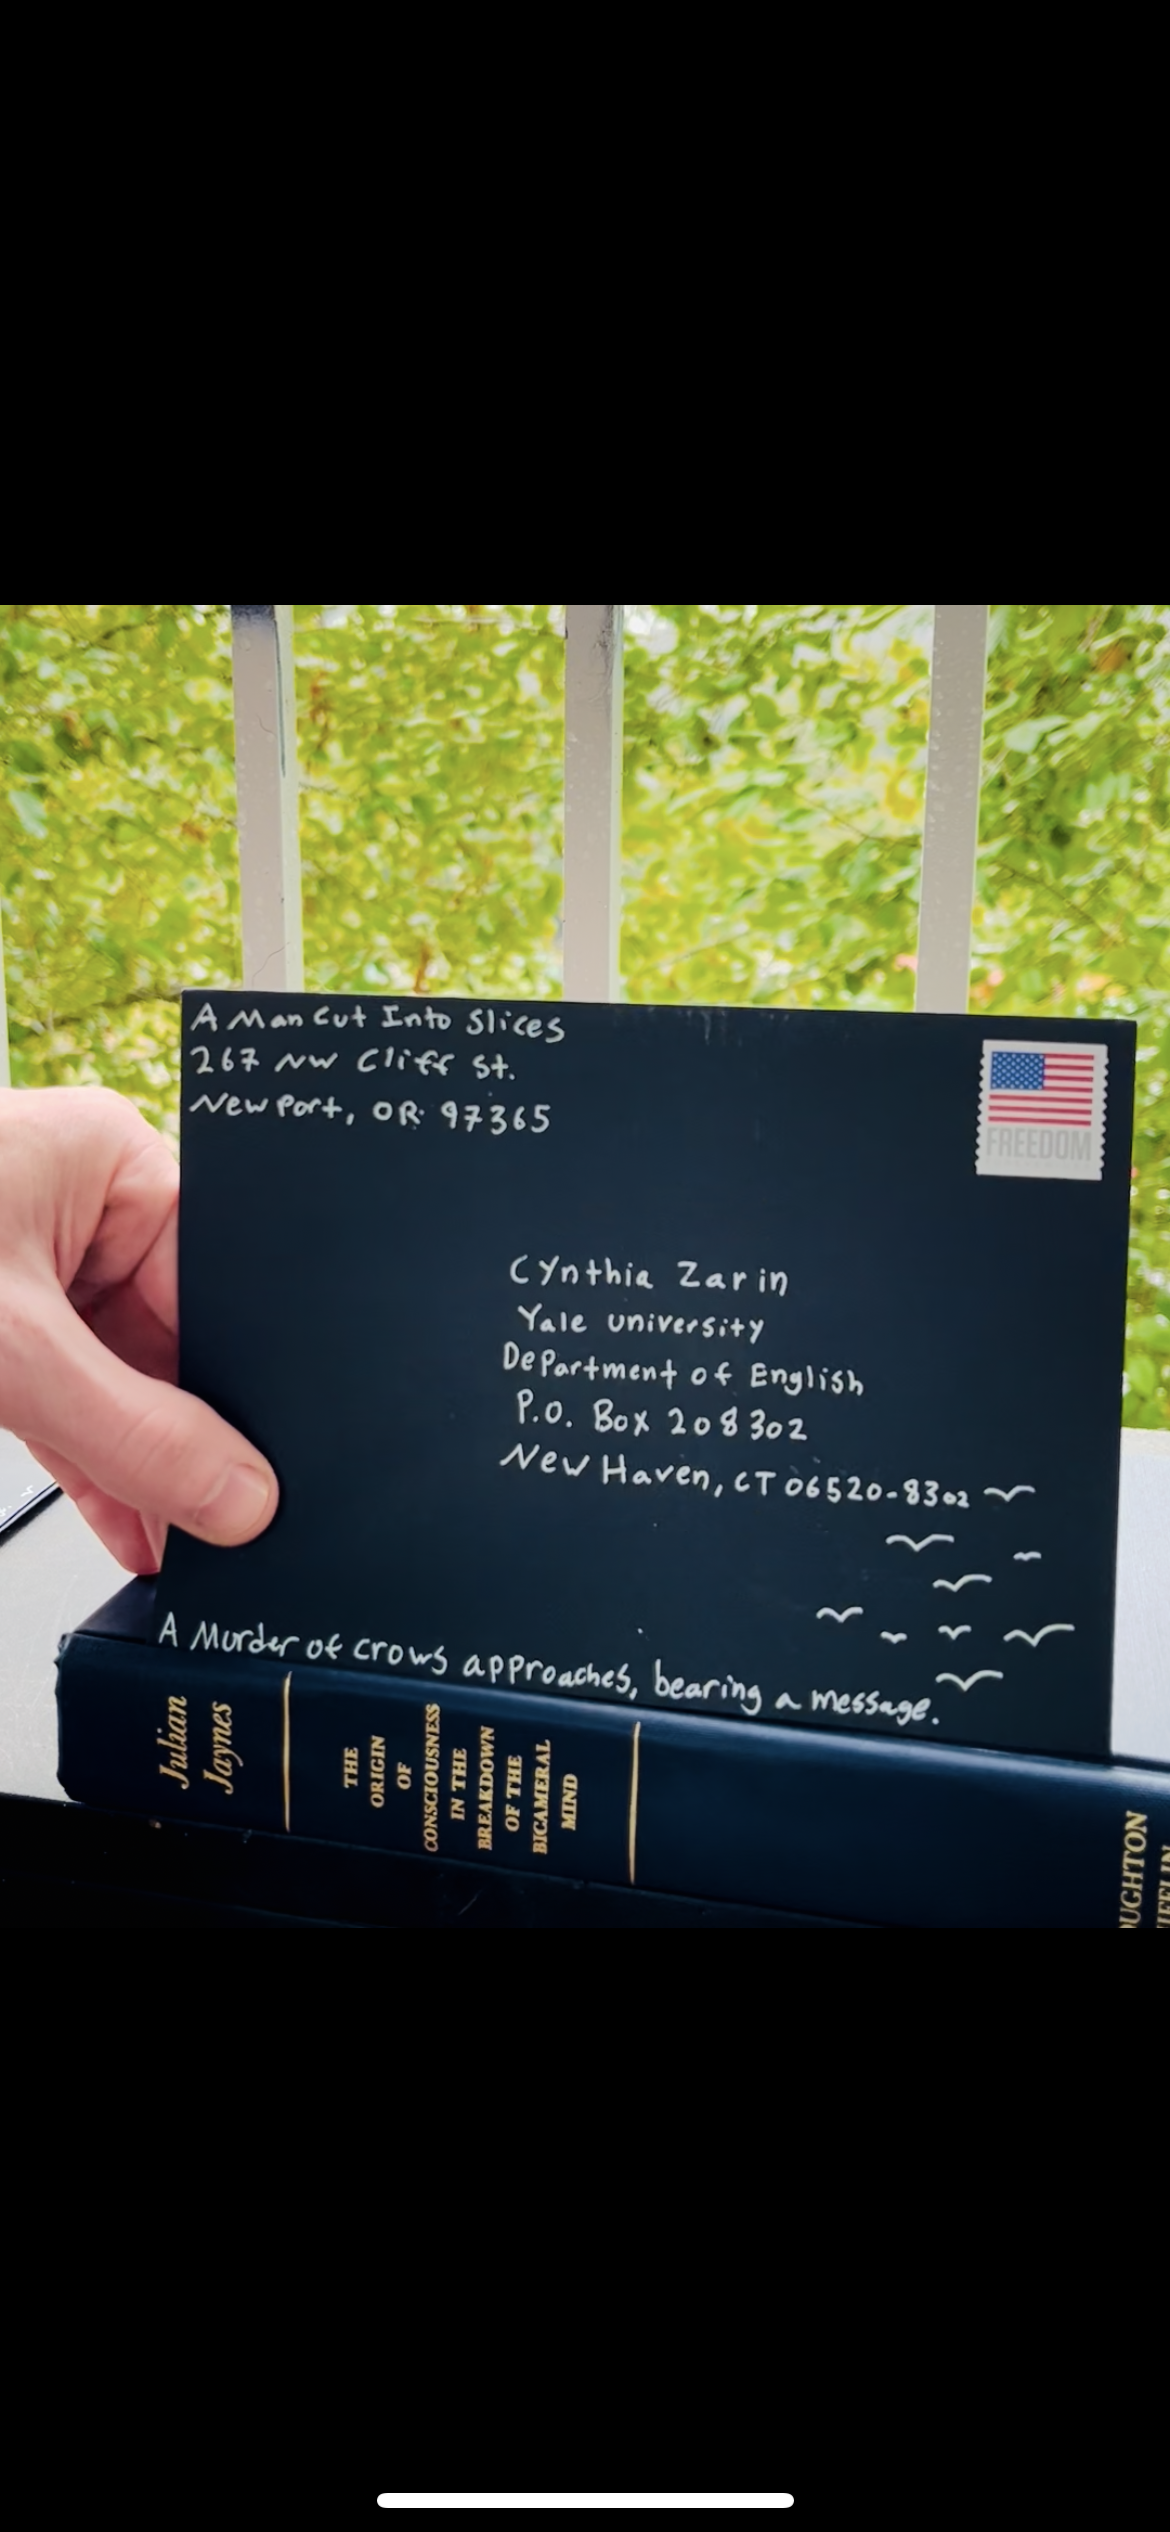 A Man Cut Into Slices
267 NW Cliff St.
Newport, OR 97365
FREEDOM
Cynthia Zarin
Yale university
Department of English
P.O. Box 208302
New Haven, CT 06520-8302
A Murder of crows approaches, bearing a message.
Julian
Jaynes
THE
ORIGIN
OF
CONSCIOUSNESS
IN THE
BREAKDOWN
OF THE
BICAMERAL
MIND